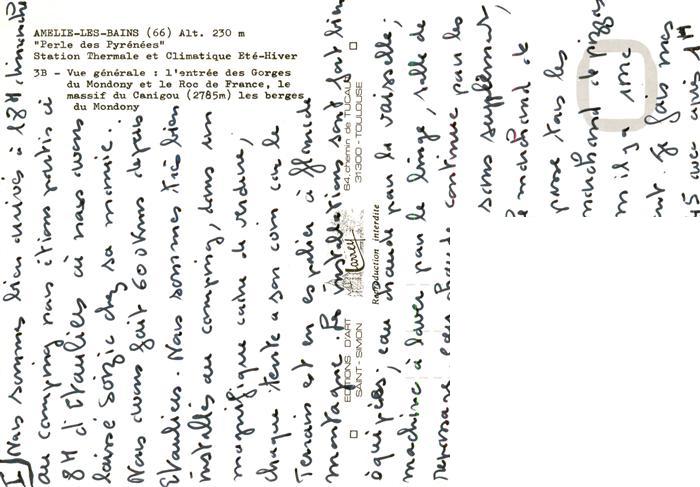 AMELIE-LES-BAINS (66) Alt. 230 m
"Perle des Pyrénées"
Station Thermale et Climatique Eté-Hiver
3B - Vue générale : l'entrée des Gorges
du Mondony et le Roc de France, le
massif du Canigou (2785m) les berges
du Mondony
Nous sommes bien arrivés à 18H dimanche
au camping nous étions partis à
8H d'Etauliers où nous avons
laissé chez sa mamie.
Nous avons fait 600Kms depuis
Etauliers. Nous sommes très bien
installés au camping, dans un
magnifique cadre de verdure,
chaque tente a son coin car le
Terrain est en espalier à flanc de
montagne. Les installations sont tout bien
équipées, eau chaude pour la vaisselle,
machine à laver pour le linge, salle de
repassage, eau chaude continue pour les
sans supplément,
marchand de
passe tous les
marchand de pizzas
il y a une
Je fais mes
avec
EDITIONS D'ART
SAINT-SIMON
Larrey
64, chemin de TUCAUT
31300 - TOULOUSE
Reproduction interdite